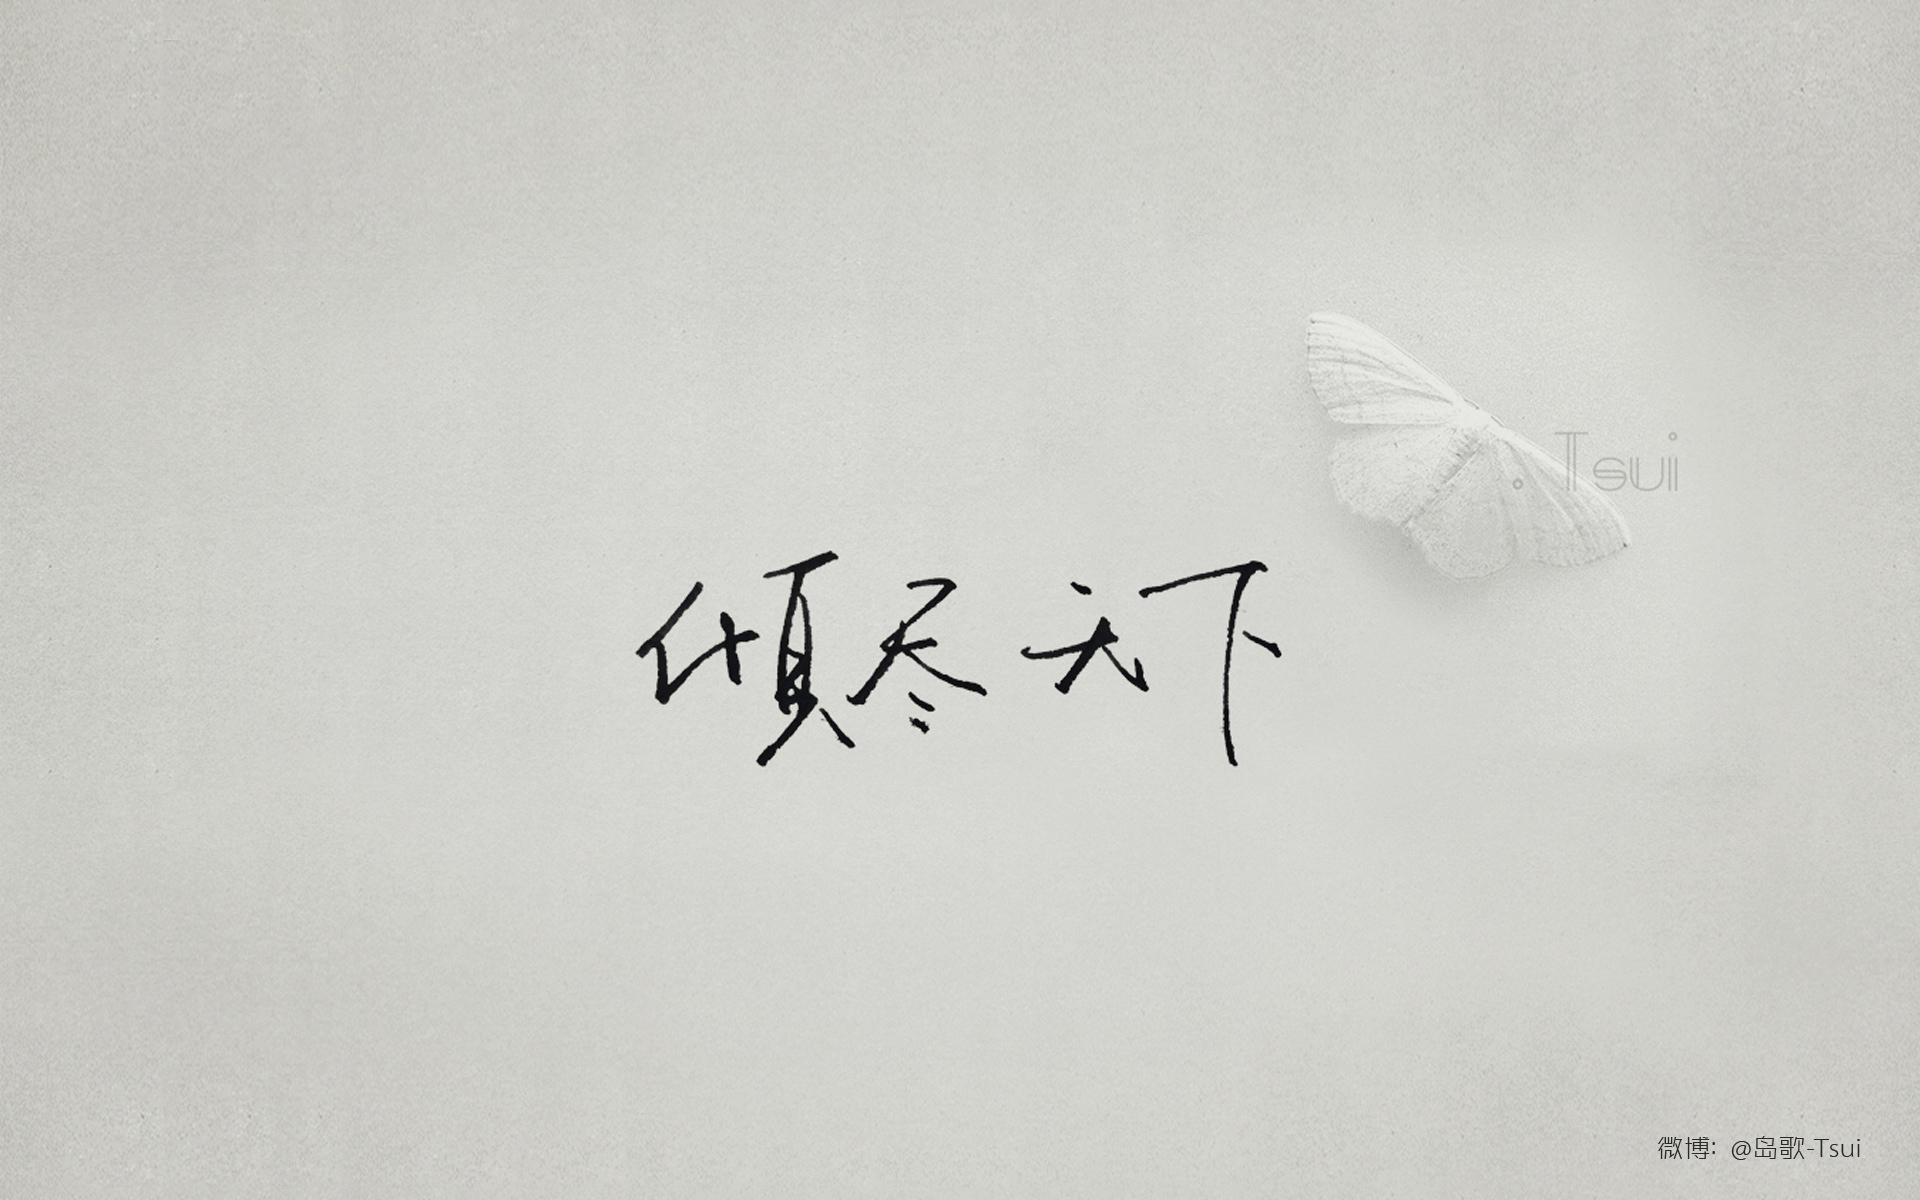 . Tsui
倾尽天下
微博: @岛歌-Tsui